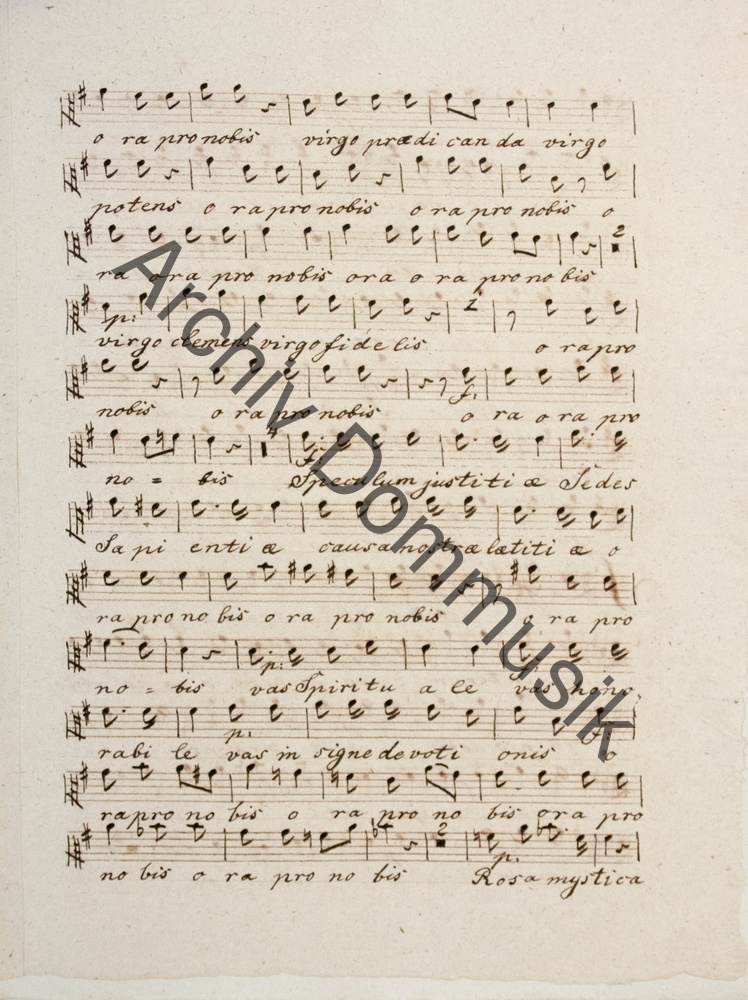 o ra pro nobis virgo prædi can da virgo
potens o ra pro nobis o ra pro nobis o
ra o ra pro nobis ora o ra pro no bis
2
p:
virgo clemens virgo fi de lis o ra pro
1
nobis o ra pro nobis o ra o ra pro
f:
no = bis Speculum justiti æ Sedes
f:
Sa pi enti æ causa nostræ lætiti æ o
ra pro no bis o ra pro nobis o ra pro
no = bis vas Spiritu a le vas hono-
p:
rabi le vas in signe devoti onis o
p:
ra pro no bis o ra pro no bis ora pro
no bis o ra pro no bis Rosa mystica
2
p:
Archiv Dommusik